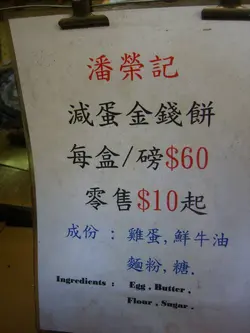 潘榮記
減蛋金錢餅
每盒/磅$60
零售$10起
成份 : 雞蛋,鮮牛油
麵粉,糖.
Ingredients : Egg . Butter .
Flour . Sugar .